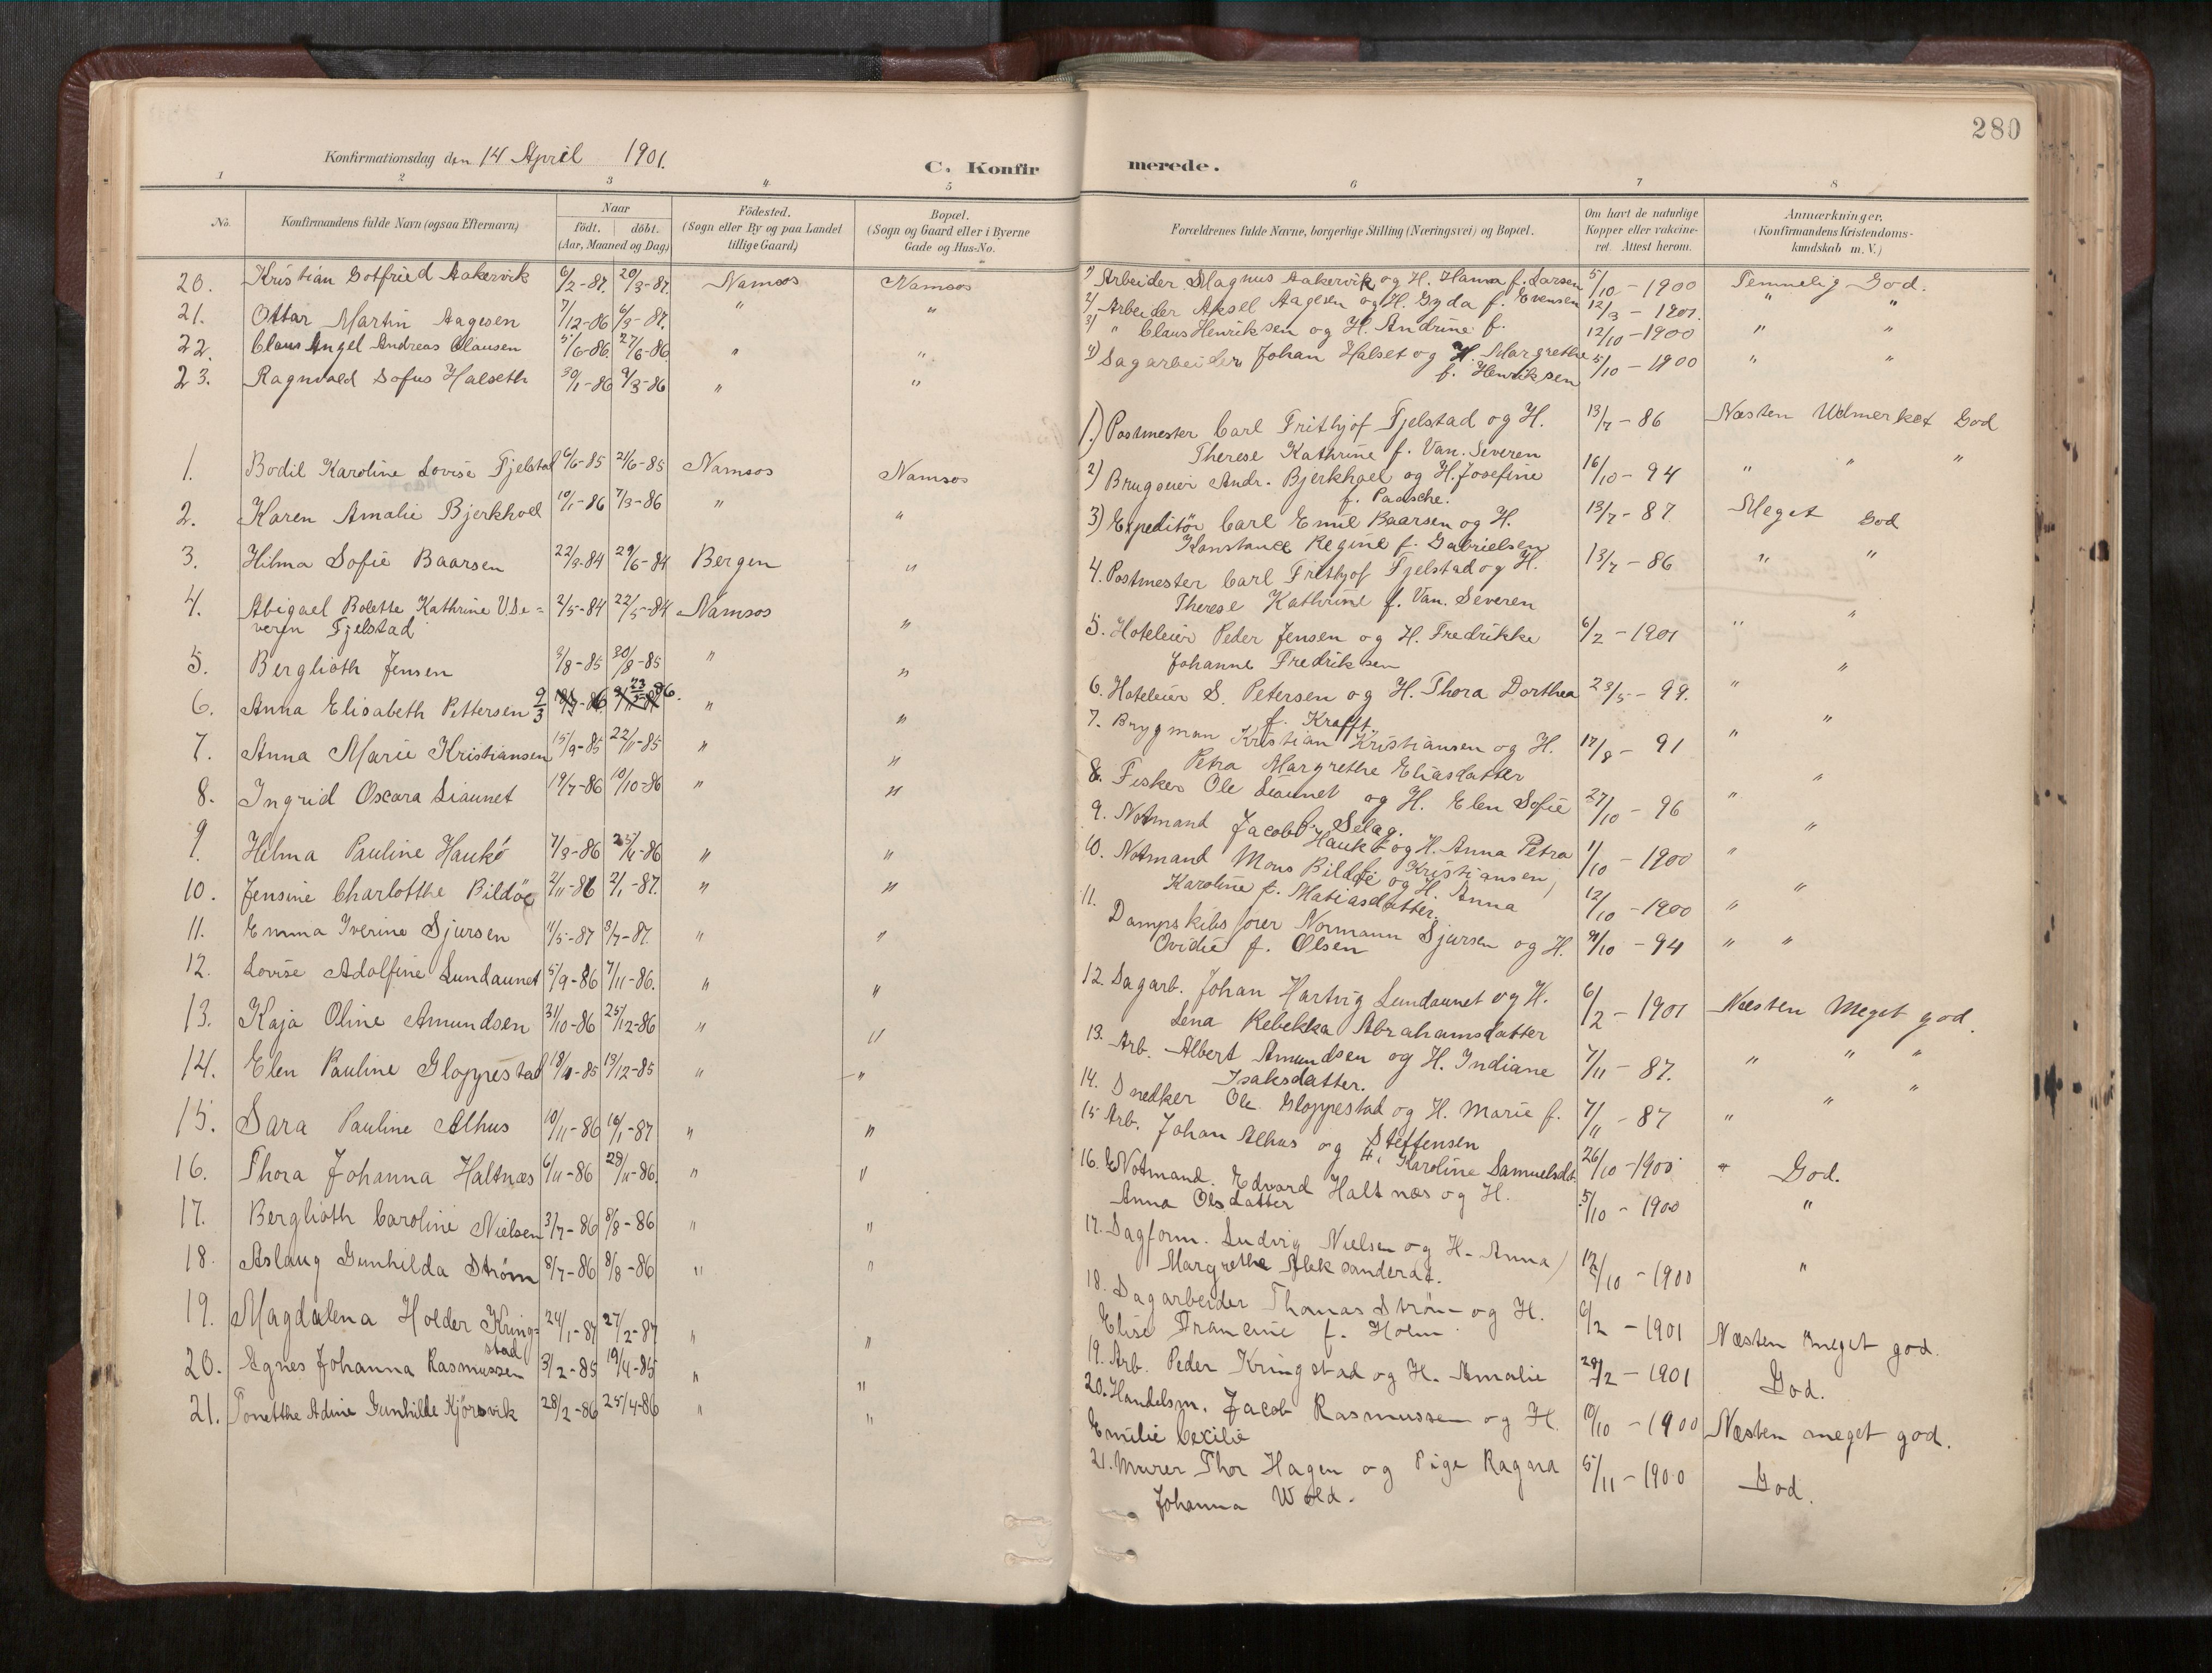 280
Konfirmationsdag den 14 April 1901.
C. Konfirmerede.
1 2 3 4 5 6 7 8
No.
Konfirmandens fulde Navn (ogsaa Efternavn)
Naar
födt. döbt.
(Aar, Maaned og Dag)
Födested.
(Sogn eller By og paa Landet
tillige Gaard)
Bopæl.
(Sogn og Gaard eller i Byerne
Gade og Hus-No.
Forældrenes fulde Navne, borgerlige Stilling (Næringsvei) og Bopæl.
Om havt de naturlige
Kopper eller vakcine-
ret. Attest herom.
Anmærkninger.
(Konfirmandens Kristendoms-
kundskab m. V.)
20. Kristian Gotfried Aakervik 6/2-87. 20/3-87. Namsos Namsos
21. Ottar Martin Aagesen 7/12-86 6/3-87. " "
22. Claus Angel Andreas Clausen 5/6-86. 27/6-86 " "
23. Ragnvald Sofus Halseth 30/1-86 9/3-86 " "
1. Bodil Karoline Lovise Fjelstad 6/6-85 21/6-85 Namsos Namsos
2. Karen Amalie Bjerkhoel 10/1-86 7/3-86 " "
3. Hilma Sofie Baarsen 22/3-84 29/6-84 Bergen "
4. Abigael Bolette Kathrine V.Se=
veren Fjelstad 2/5-84 22/5-84 Namsos "
5. Berglioth Jensen 3/8-85 30/8-85 " "
6. Anna Elisabeth Pettersen 9/3 23/5 86. " "
7. Anna Marie Kristiansen 15/9-85 22/11-85 " "
8. Ingrid Oscara Liaunet 19/7-86 10/10-86 " "
9. Hilma Pauline Haukö 7/3-86 25/4-86 " "
10. Jensine Charlotthe Bildöe 2/11-86 2/1-87. " "
11. Emma Iverine Sjursen 11/5-87 3/7-87. " "
12. Lovise Adolfine Lundaunet 5/9-86 7/11-86. " "
13. Kaja Oline Amundsen 31/10-86 25/12-86 " "
14. Elen Pauline Gloppestad 18/11-85 13/12-85 " "
15. Sara Pauline Alhus 10/11-86 16/1-87 " "
16. Thora Johanna Haltnæs 6/11-86 28/11-86. " "
17. Bergliöth Caroline Nielsen 3/7-86 8/8-86 " "
18. Aslaug Gunhilda Strøm 8/7-86 8/8-86 " "
19. Magdalena Holder Kring=
stad 24/1-87 27/2-87 " "
20. Agnes Johanna Rasmussen 3/2-85 19/4-85 " "
21. Tonetthe Adine Gunhilde Kjörsvik 28/2-86 25/4-86 " "
1) Arbeider Magnus Aakervik og H. Hanna f. Larsen 5/10-1900 Temmelig God.
2) Arbeider Aksel Aagesen og H. Gyda f. Evensen 12/3-1901. " "
3) " Claus Henriksen og H. Andrine f. 12/10-1900 " "
4) Sagarbeider Johan Halset og H. Margrethe 5/10-1900 " "
f. Henriksen
1.) Postmester Carl Frithjof Fjelstad og H. 13/7-86 Næsten Udmerket God
Therese Kathrine f. Van. Severen
2) Brugseier Andr. Bjerkhoel og H. Josefine 16/10-94 " " "
f. Paasche.
3) Expeditör Carl Emil Baarsen og H. 13/7-87 Meget God
Konstance Regine f. Gabrielsen
4. Postmester Carl Frithjof Fjelstad og H. 13/7-86 " "
Therese Kathrine f. Van. Severen
5. Hoteleier Peder Jensen og H. Fredrikke 6/2-1901 " "
Johanne Fredriksen
6. Hoteleier S. Petersen og H. Thora Dorthea 23/5-99. " "
f. Krafft
7. Brygman Kristian Kristiansen og H. 17/8-91 " "
Petra Margrethe Eliasdatter
8. Fisker Ole Liaunet og H. Elen Sofie 27/10-96 " "
f. Selag.
9. Notmand Jacob Haukö og H. Anna Petra 1/10-1900 " "
f. Kristiansen
10. Notmand Mons Bildöe og H. Anna 12/10-1900 " "
Karoline f. Matiasdatter.
11. Dampskibsförer Normann Sjursen og H. 9/10-94 " "
Ovidie f. Olsen
12. Sagarb. Johan Hartvig Lundaunet og H. 6/2-1901 Næsten Meget god.
Lena Rebekka Abrahamsdatter
13. Arb. Albert Amundsen og H. Indiane 7/11-87. " " "
Isaksdatter.
14. Snedker Ole Gloppestad og H. Marie f. 7/11-87 " " "
Steffensen
15 Arb. Johan Alhus og H. Karoline Samuelsdt. 26/10-1900 " God.
16. Notmand. Edvard Haltnæs og H. 5/10-1900 "
Anna Olsdatter
17. Sagform. Ludvig Nielsen og H. Anna 12/10-1900 "
Margrethe Aleksandersdt.
18. Sagarbeider Thomas Strøm og H. 6/2-1901 Næsten meget god.
Elise Francine f. Holm
19. Arb. Peder Kringstad og H. Amalie 29/2-1901 God.
20. Handelsm. Jacob Rasmussen og H. 10/10-1900 Næsten meget god.
Emilie Cecilie
21. Murer Thor Hagen og Pige Ragna 5/11-1900 God.
Johanna Wold.